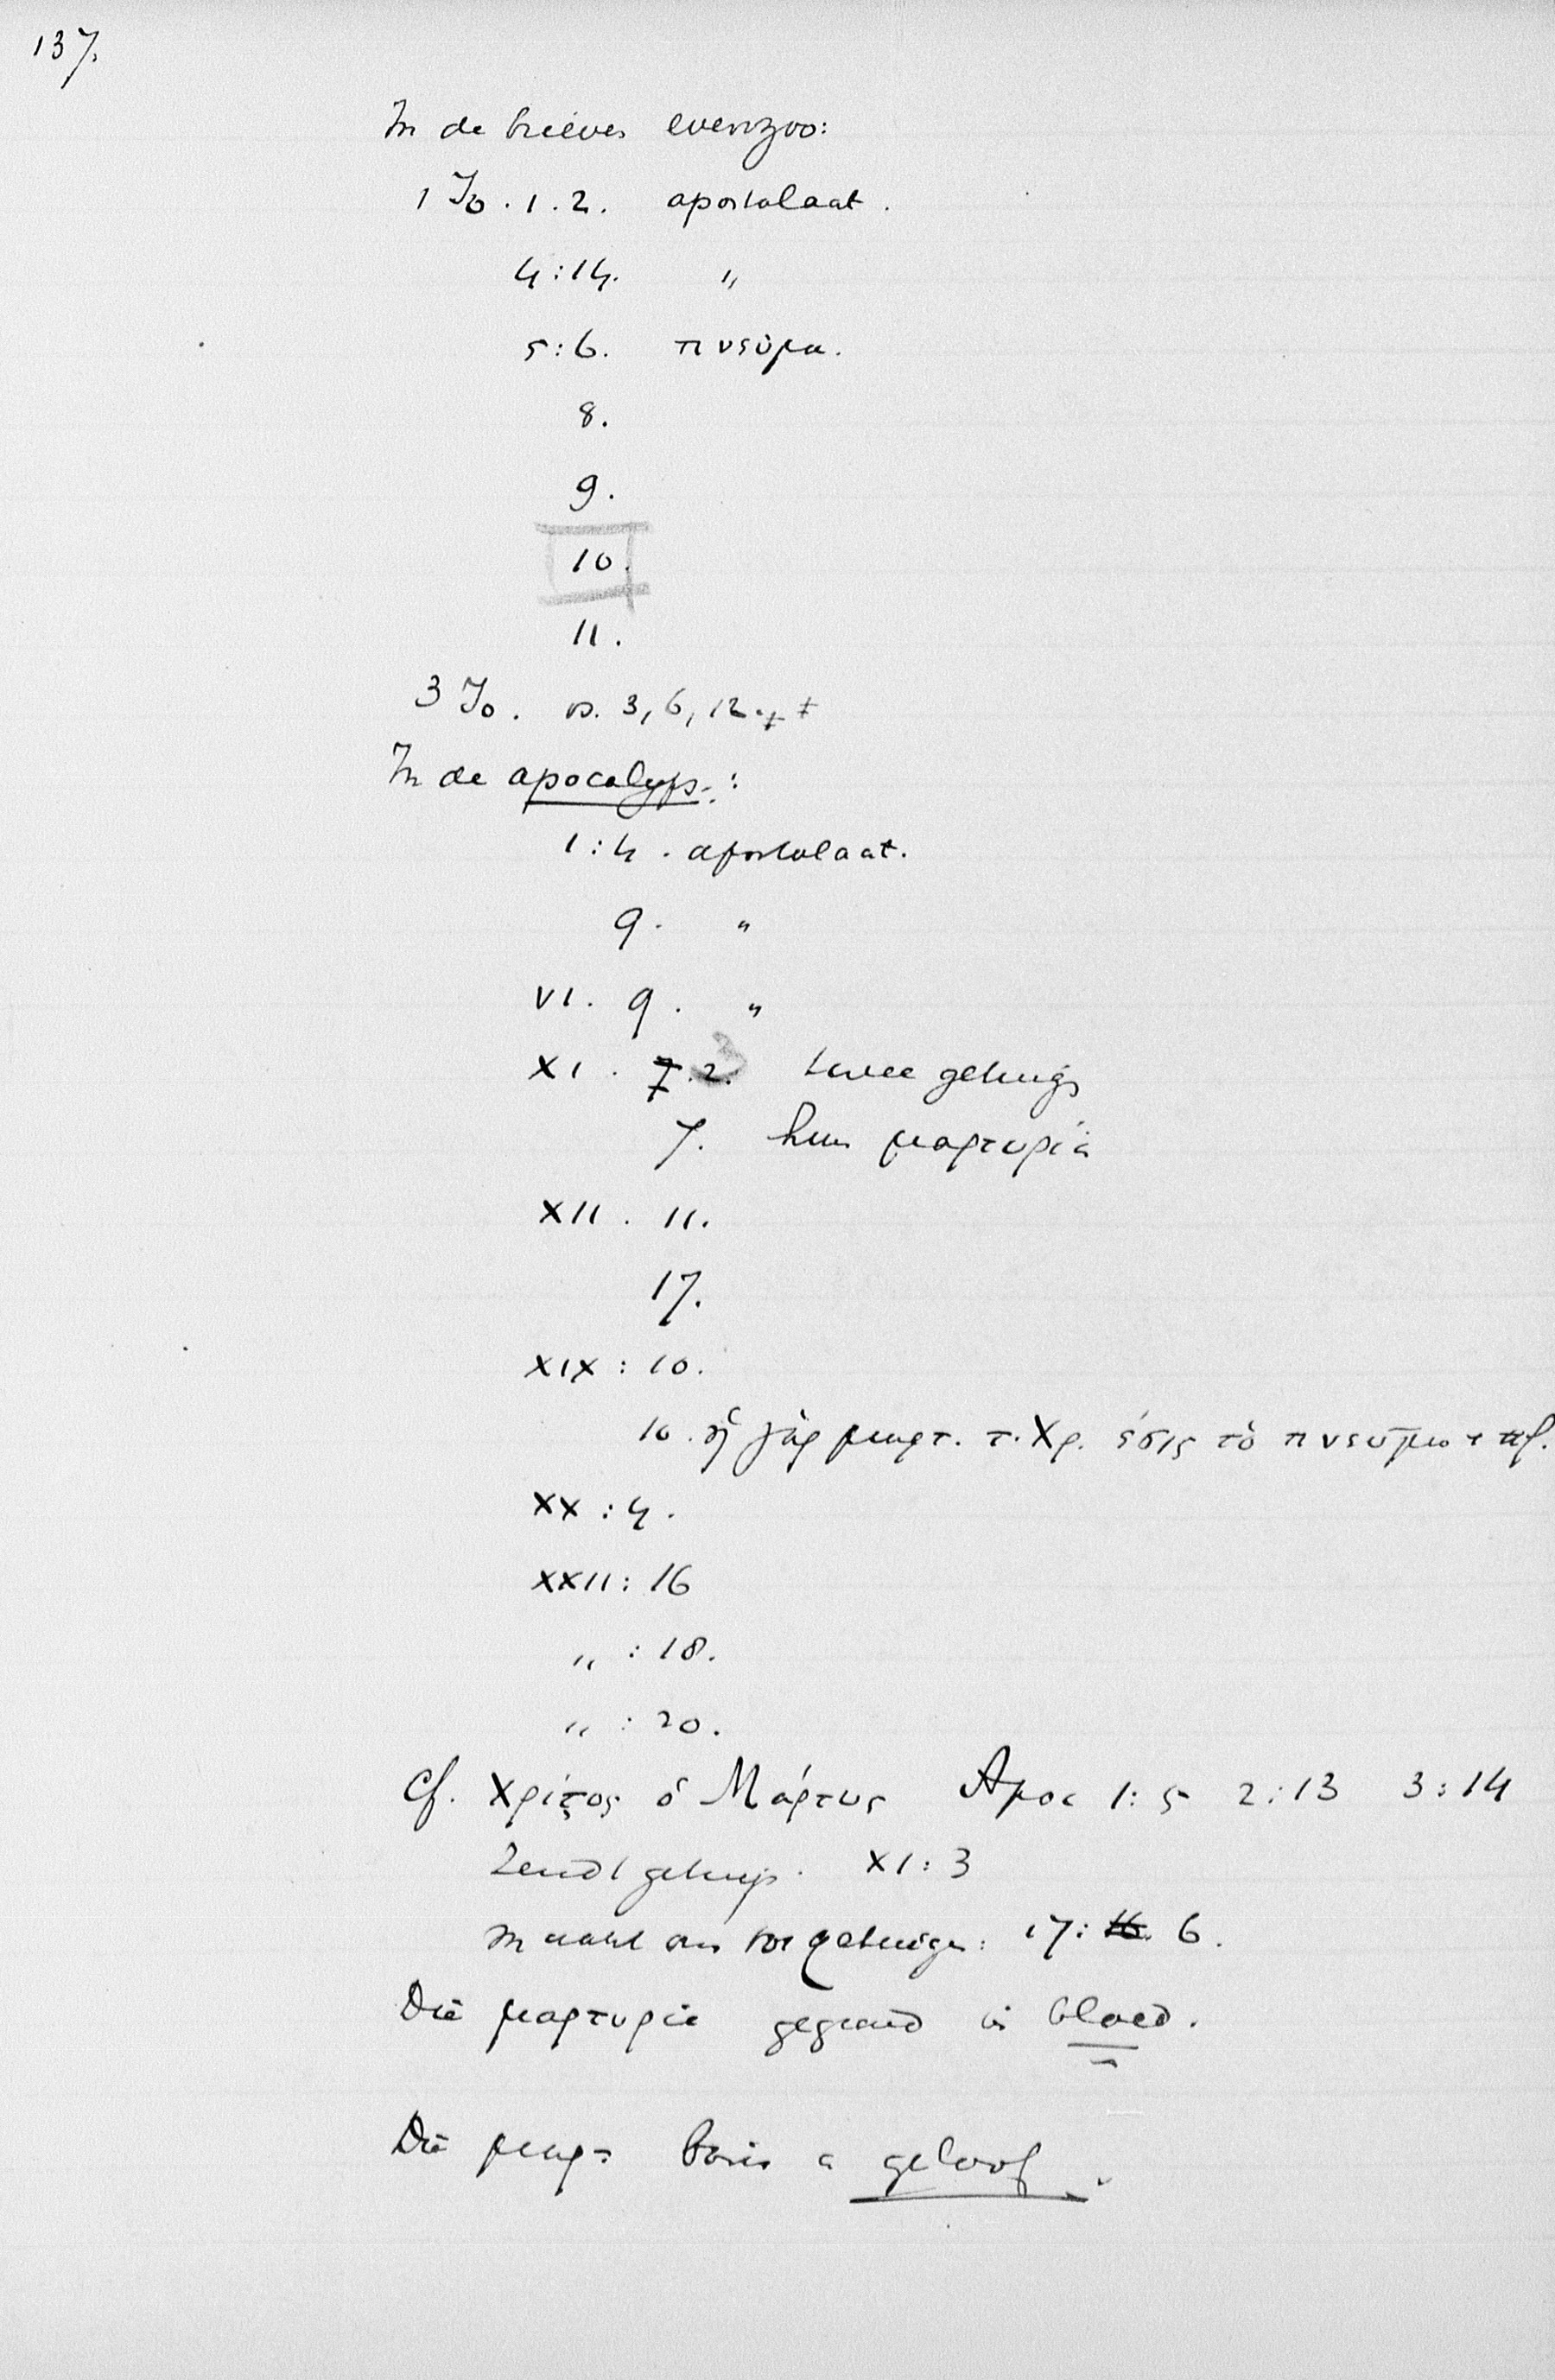 137.
In de brieven evenzoo:
1 Jo. 1.2. apostolaat.
4:14. "
5:6. πνεῦμα.
8.
9.
10.
11.
3 Jo. vs. 3, 6, 12.
In de apocalyps.:
1:4. apostolaat.
9. "
VI. 9. "
XI. 3 twee getuigs
7. hun μαρτυρία
XII. 11.
17.
XIX: 10.
10. ἡ γὰρ μαρτ. τ. Χρ. ἐστι τὸ πνεῦμα τ πρ.
XX: 4.
XXII: 16
" : 18.
" : 20.
Cf. Χρίστος ὁ Μάρτυς Apoc 1:5 2:13 3:14
Zendt getuigs. XI: 3
17: 6.
Die μαρτυρία gegrond in bloed.
Die μαρτ basis geloof.